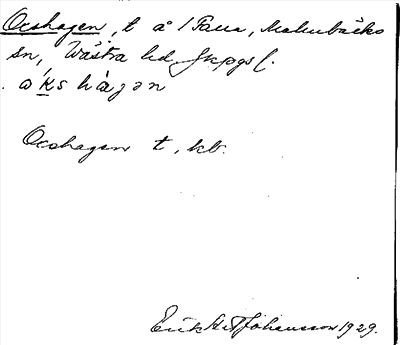 Oxhagen, t å 1 Tana, Malmbäcks
sn, Västra hd Jkpgs l.
. oks hagən
Oxhagen t, kb.
Erik Johansson 1929.